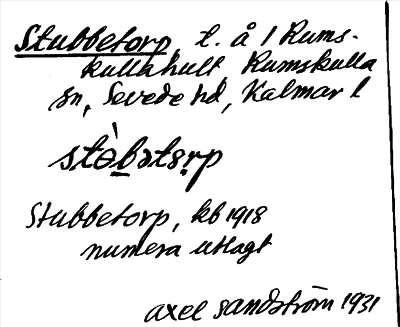 Stubbetorp, t. å 1 Rums-
kullahult Rumskulla
sn, Sevede hd, Kalmar l
stə̀b̲ətɞrp
Stubbetorp, kb 1918
numera utlagt
Axel Sandström 1931